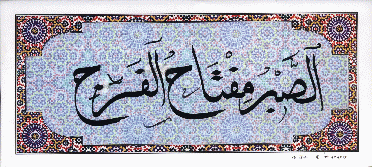 الصَّبْرُ مِفْتَاحُ الْفَرَجِ